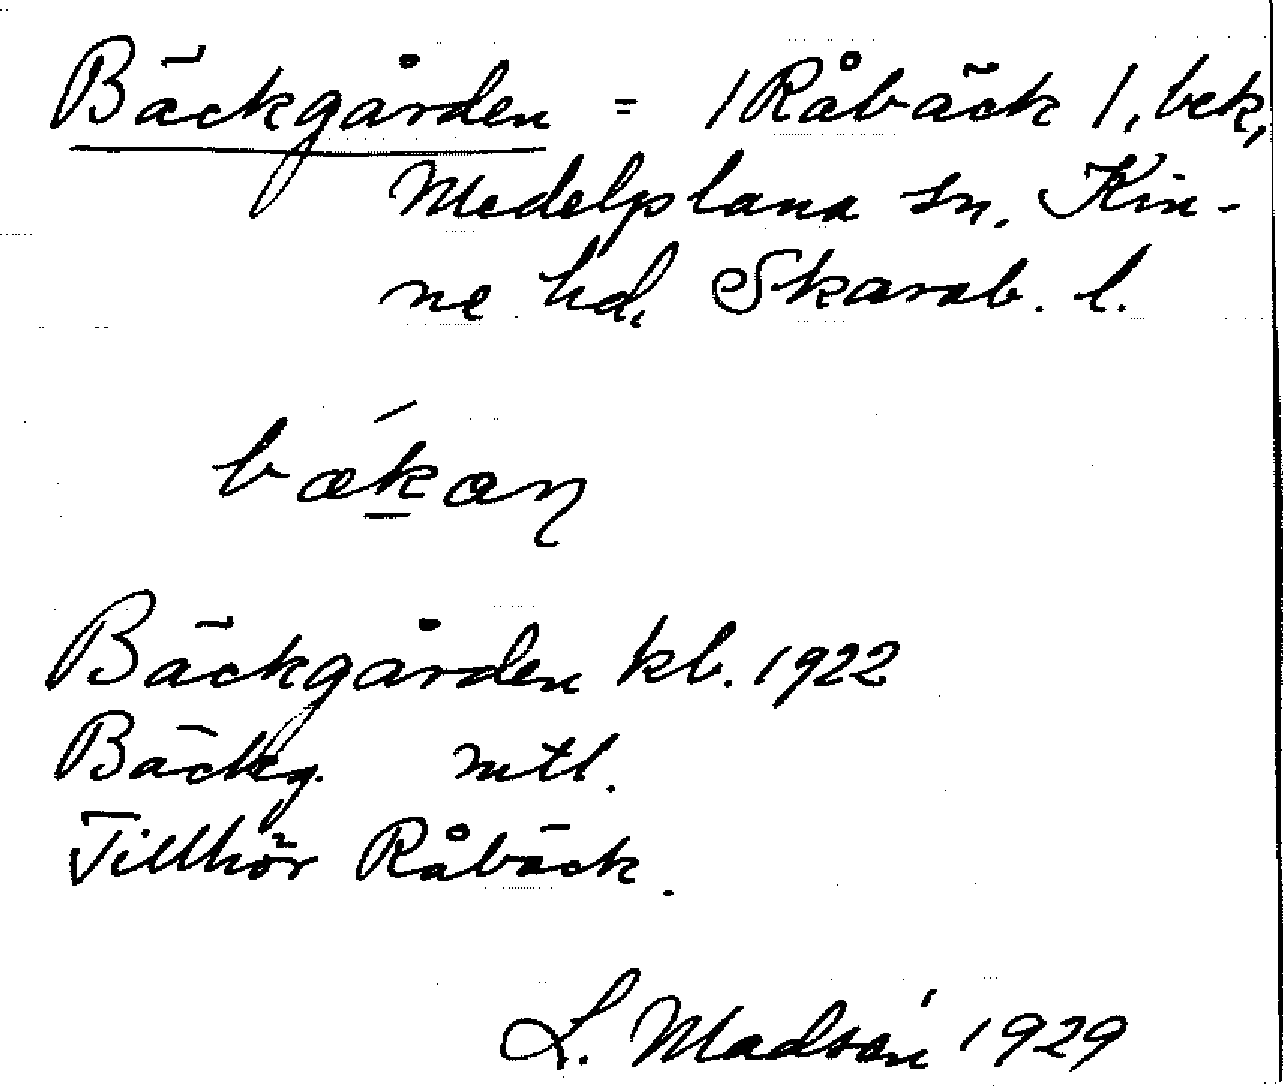 Bäckgården = /Råbäck/, bek,
Medelplana sn. Kin-
ne hd, Skarab. l.
bækan
Bäckgården kb. 1922
Bäckg. mtl.
Tillhör Råbäck.
L. Madsén 1929